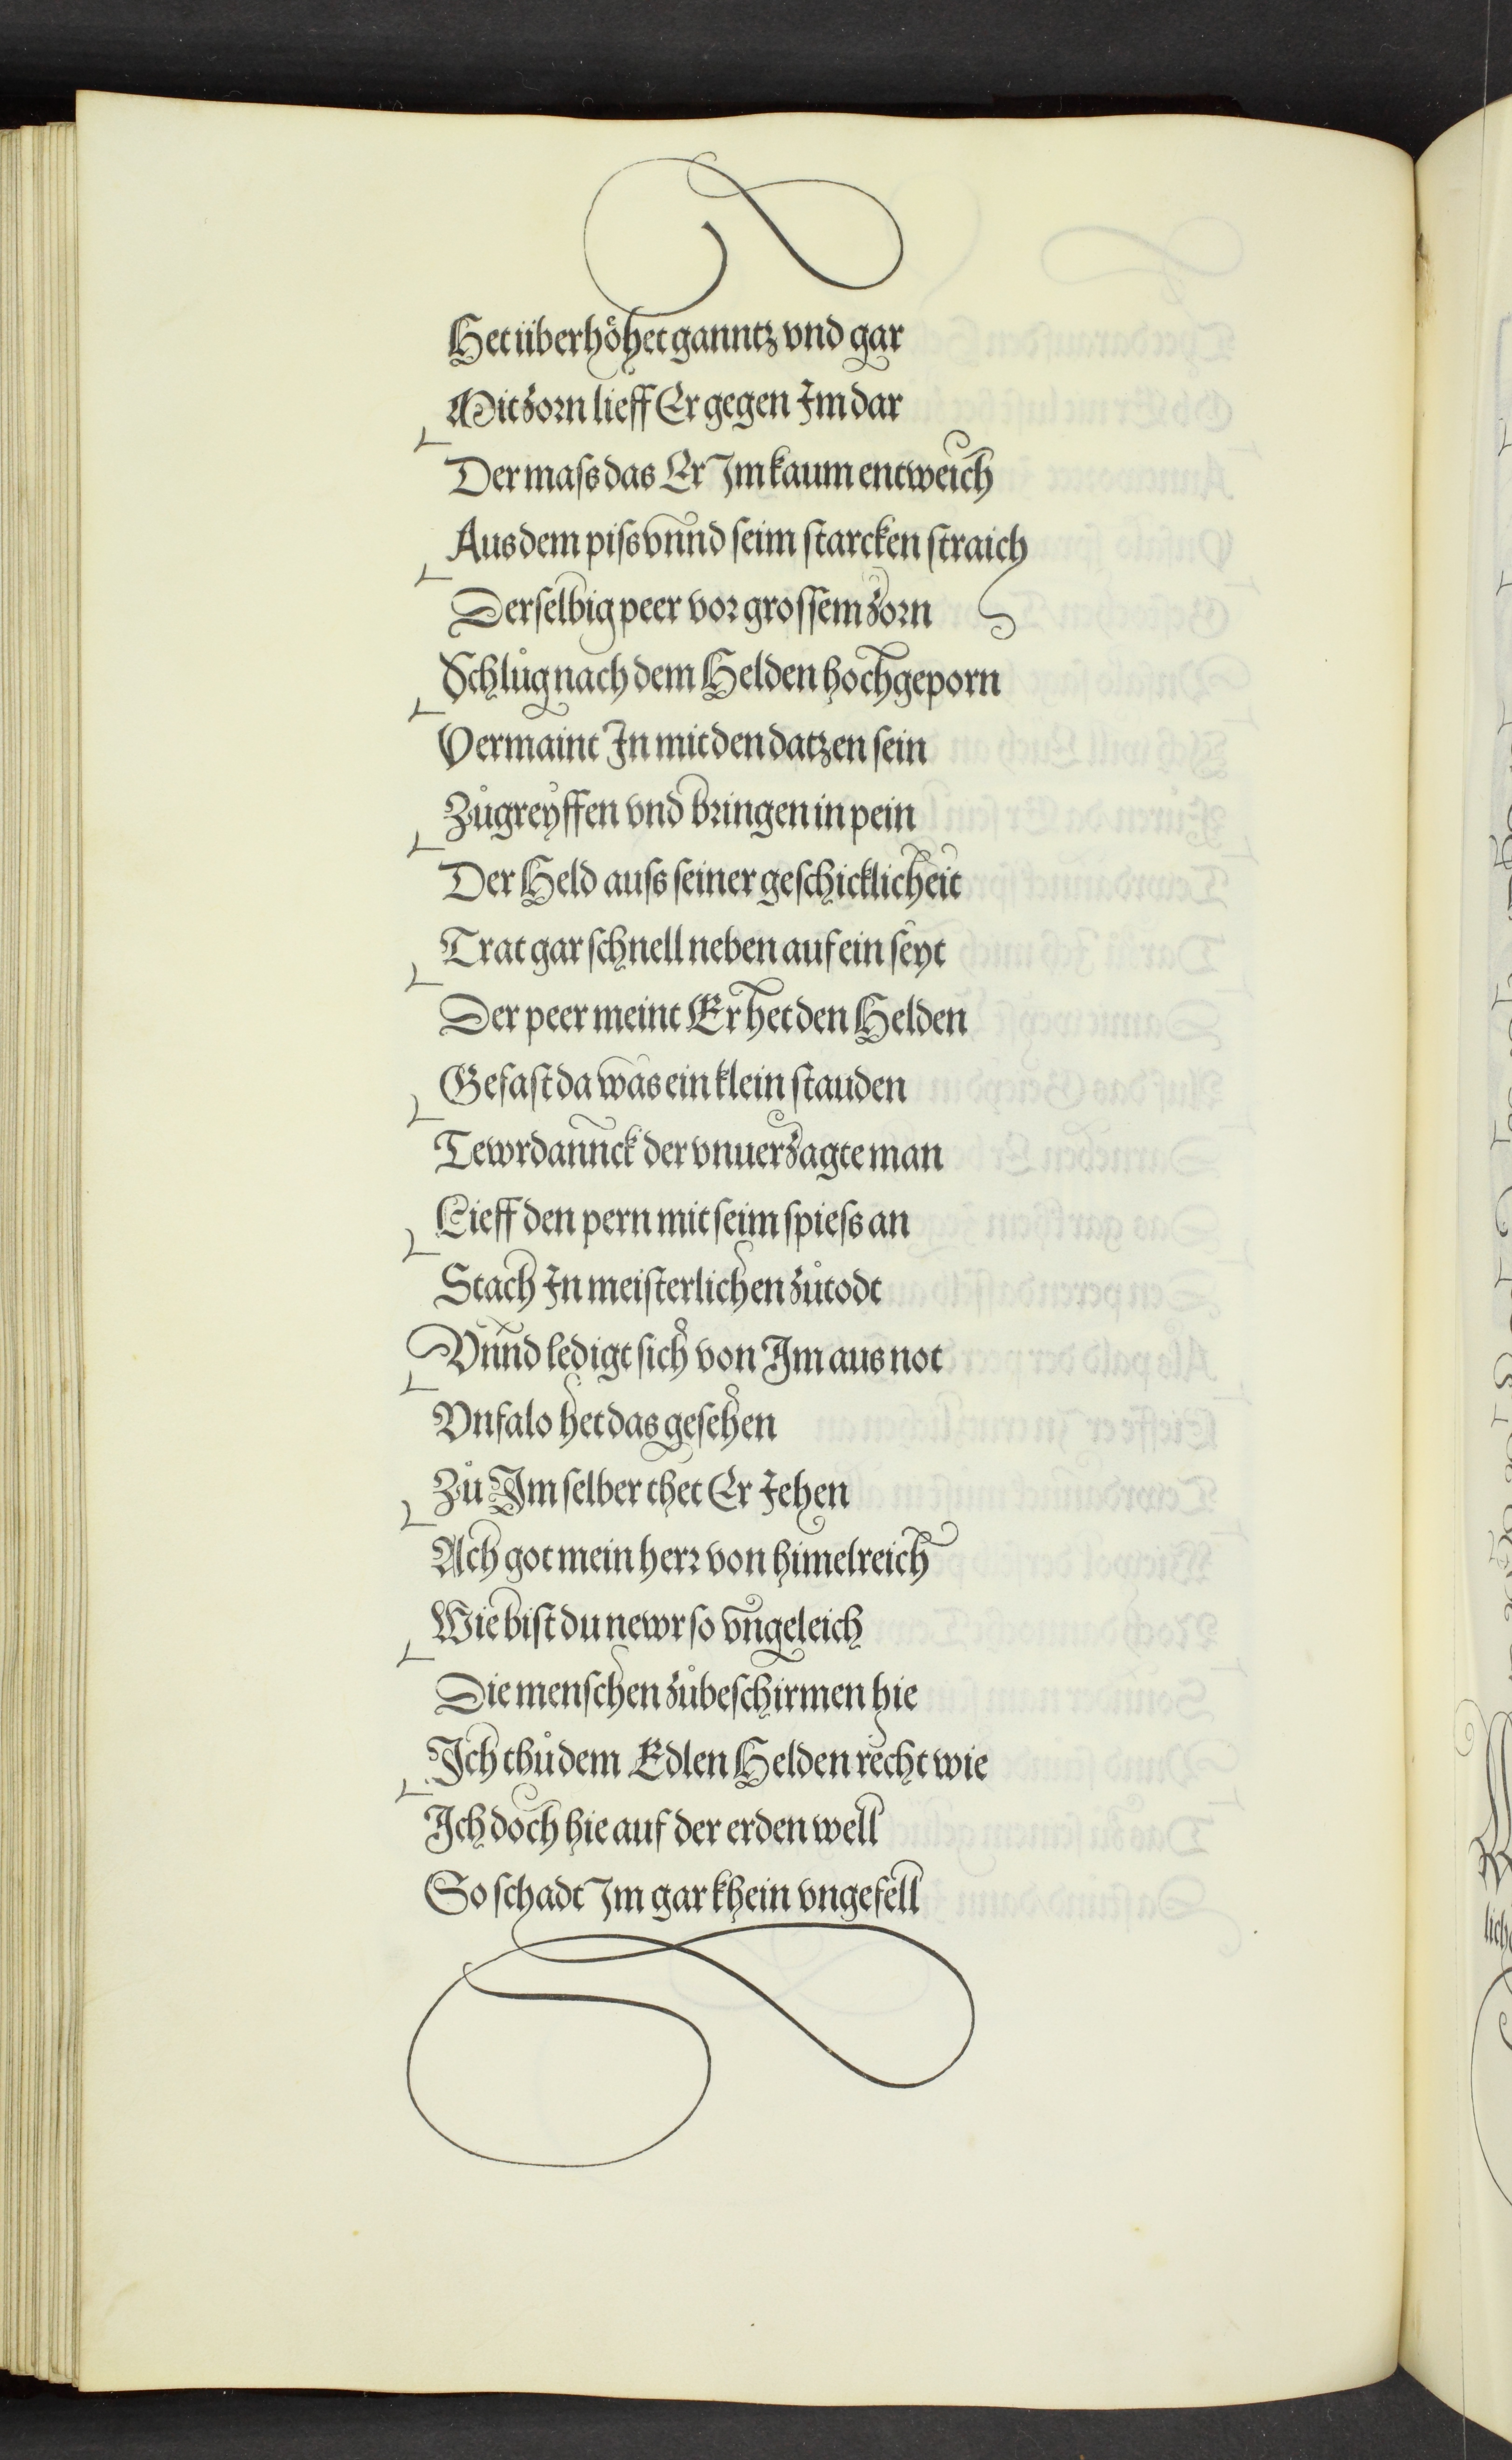 Het überhöhet ganntz vnd gar
Mit zorn lieff Er gegen Im dar
Der maſs das Er Im kaum entweich
Aus dem piſs vnnd ſeim ſtarcken ſtraich
Derſelbig peer vor groſſem zorn
Schlůg nach dem Helden hochgeporn
Vermaint In mit den datzen ſein
Zůgreyffen vnd bringen in pein
Der Held auſs ſeiner geſchicklicheit
Trat gar ſchnell neben auf ein ſeyt
Der peer meint Er het den Helden
Gefaſt da was ein klein ſtauden
Tewrdannck der vnuerzagte man
Lieff den pern mit ſeim ſpieſs an
Stach In meiſterlichen zůtodt
Vnnd ledigt ſich von Im aus not
Vnfalo het das geſehen
Zů Im ſelber thet Er Jehen
Ach got mein herr von himelreich
Wie biſt du newr ſo vngeleich
Die menſchen zůbeſchirmen hie
Ich thů dem Edlen Helden recht wie
Ich doch hie auf der erden well
So ſchadt Im gar khein vngefell